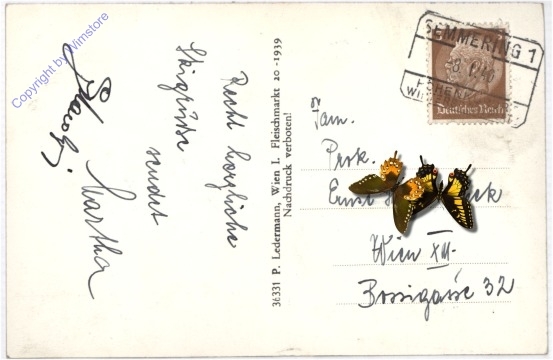 Copyright by Wimstore
Recht herzliche
Skigrüße
sendet
Martha
36331 P. Ledermann, Wien I. Fleischmarkt 20 -1939
Nachdruck verboten!
SEMMERING 1
Deutsches Reich
Fam.
Prok.
Ernst
Wien XII.
Bossigasse 32